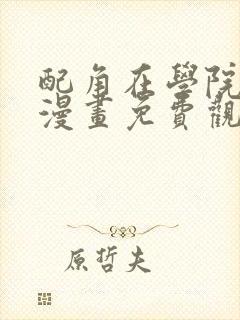 配角在學院
漫畫免費觀
原哲夫